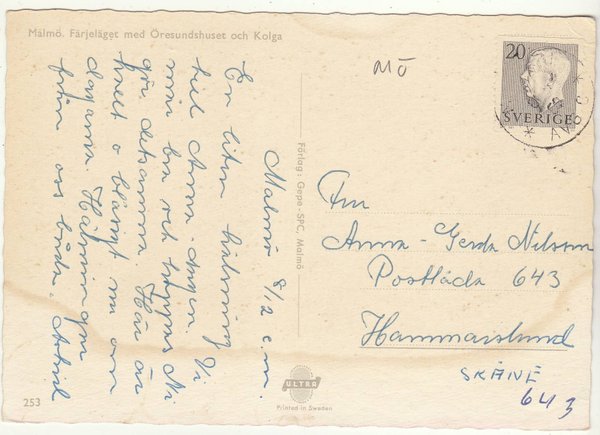 Malmö. Färjeläget med Öresundshuset och Kolga
MÖ
20
SVERIGE
AVSC
Malmö 8/12 e.m.
En liten hälsning
till Anna-dagen. Vi
mår bra och hoppas Ni
gör detsamma. Här är
kallt o blåsigt om
dagarna. Hälsningar
från oss båda.
Förlag: Gepe-SPC, Malmö
Fru
Anna-Gerda Nilsson
Postlåda 643
Hammarslund
SKÅNE
643
ULTRA
Printed in Sweden
253